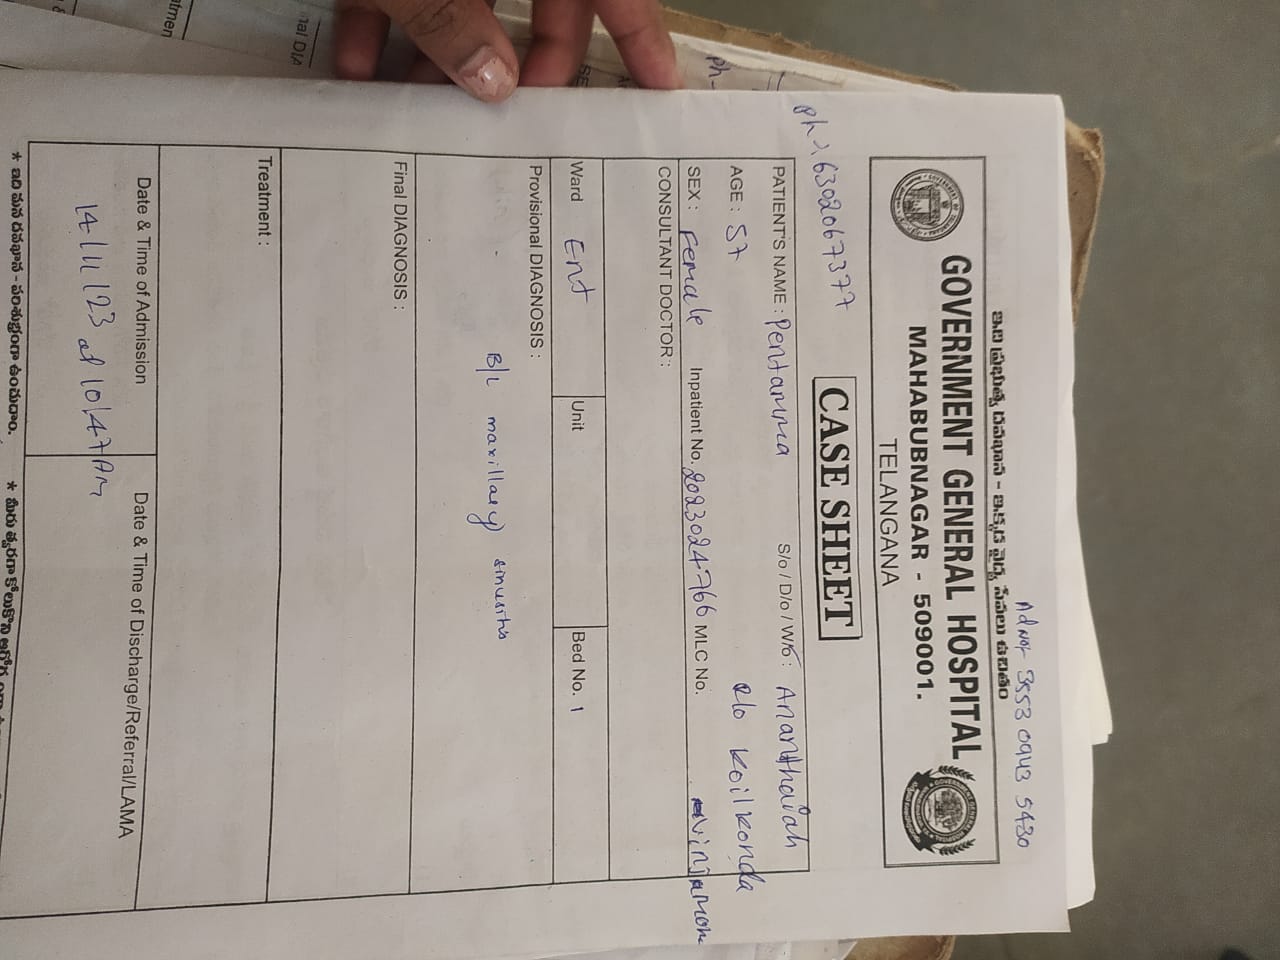 Ad No:- 3553 0943 5430
ఇది ప్రభుత్వ దవఖాన - ఇక్కడ వైద్య సేవలు ఉచితం
GOVERNMENT GENERAL HOSPITAL
MAHABUBNAGAR - 509001.
TELANGANA
CASE SHEET
Ph:- 6302067377
PATIENT'S NAME : Pentamma S/o / D/o / W/o : Ananthaiah
AGE : 57 R/o Koilkonda
SEX : Female Inpatient No. 2023024766 MLC No.
CONSULTANT DOCTOR :
Ward Ent Unit Bed No. 1
Provisional DIAGNOSIS :
B/L maxillary sinusitis
Final DIAGNOSIS :
Treatment :
Date & Time of Admission Date & Time of Discharge/Referral/LAMA
14/11/23 at 10:47 AM
* ఇది మన దవఖాన - పరిశుభ్రంగా ఉంచుదాం.